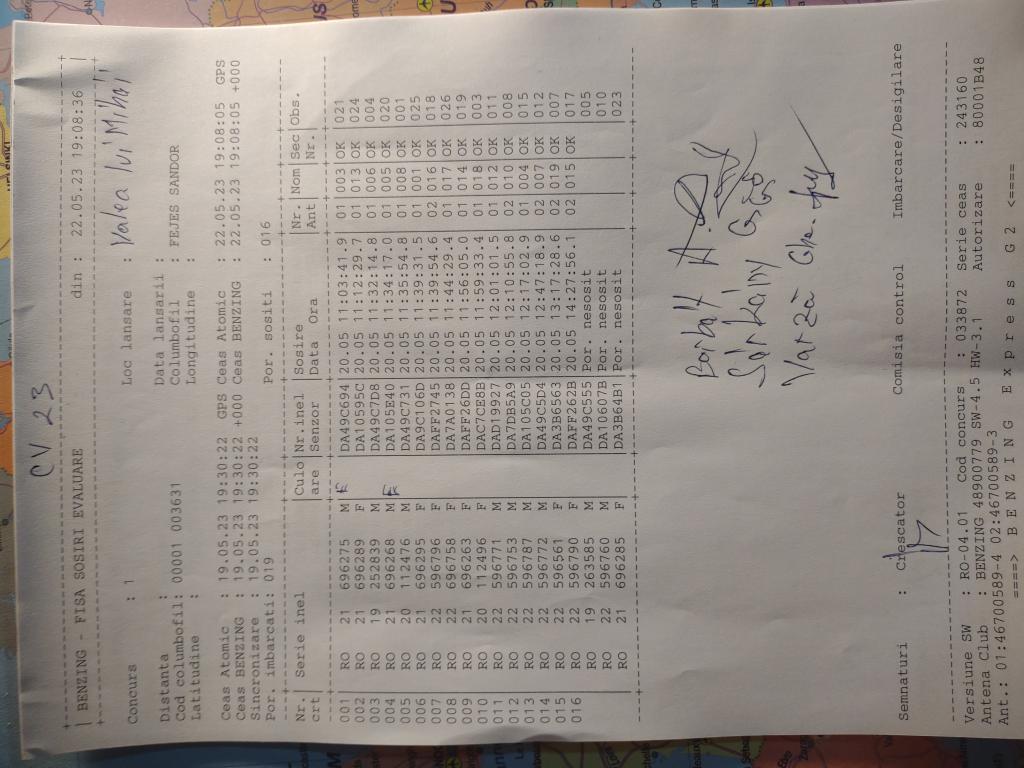 CV 23
BENZING - FISA SOSIRI EVALUARE din : 22.05.23 19:08:36
Concurs : 1 Loc lansare : Valea lui Mihai
Distanta : Data lansarii :
Cod columbofil: 00001 003631 Columbofil : FEJES SANDOR
Latitudine : Longitudine :
Ceas Atomic : 19.05.23 19:30:22 GPS Ceas Atomic : 22.05.23 19:08:05 GPS
Ceas BENZING : 19.05.23 19:30:22 +000 Ceas BENZING : 22.05.23 19:08:05 +000
Sincronizare : 19.05.23 19:30:22
Por. imbarcati: 019 Por. sositi : 016
Nr. Serie inel Culo Nr.inel Sosire Nr. Nom Sec Obs.
crt are Senzor Data Ora Ant Nr.
001 RO 21 696275 M F DA49C694 20.05 11:03:41.9 01 003 OK 021
002 RO 21 696289 F DA10595C 20.05 11:12:29.7 01 013 OK 024
003 RO 19 252839 M DA49C7D8 20.05 11:32:14.8 01 006 OK 004
004 RO 21 696268 M F DA105E40 20.05 11:34:17.0 01 005 OK 020
005 RO 20 112476 M DA49C731 20.05 11:35:54.8 01 008 OK 001
006 RO 21 696295 F DA9C106D 20.05 11:39:31.5 01 001 OK 025
007 RO 22 596796 F DAFF2745 20.05 11:39:54.6 02 016 OK 018
008 RO 22 696758 F DA7A0138 20.05 11:44:29.4 01 017 OK 026
009 RO 21 696263 F DAFF26DD 20.05 11:56:05.0 01 014 OK 019
010 RO 20 112496 F DAC7CE8B 20.05 11:59:33.4 01 018 OK 003
011 RO 22 596771 M DAD19927 20.05 12:01:01.5 01 012 OK 011
012 RO 22 596753 M DA7DB5A9 20.05 12:10:55.8 02 010 OK 008
013 RO 22 596787 M DA105C05 20.05 12:17:02.9 01 004 OK 015
014 RO 22 596772 M DA49C5D4 20.05 12:47:18.9 02 007 OK 012
015 RO 22 596561 F DA3B6563 20.05 13:17:28.6 02 019 OK 007
016 RO 22 596790 F DAFF262B 20.05 14:27:50.1 02 015 OK 017
RO 19 263585 M DA49C555 Por. nesosit 005
RO 22 596760 M DA10607B Por. nesosit 010
RO 21 696285 F DA3B64B1 Por. nesosit 023
Sárkány
Varză Ghe.
Semnaturi : Crescator Comisia control Imbarcare/Desigilare
Versiune SW : RO-04.01 Cod concurs : 033872 Serie ceas : 243160
Antena Club : BENZING 48900779 SW-4.5 HW-3.1 Autorizare : 80001B48
Ant.: 01:46700589-4 02:46700589-3
====> B E N Z I N G E x p r e s s G 2 <====